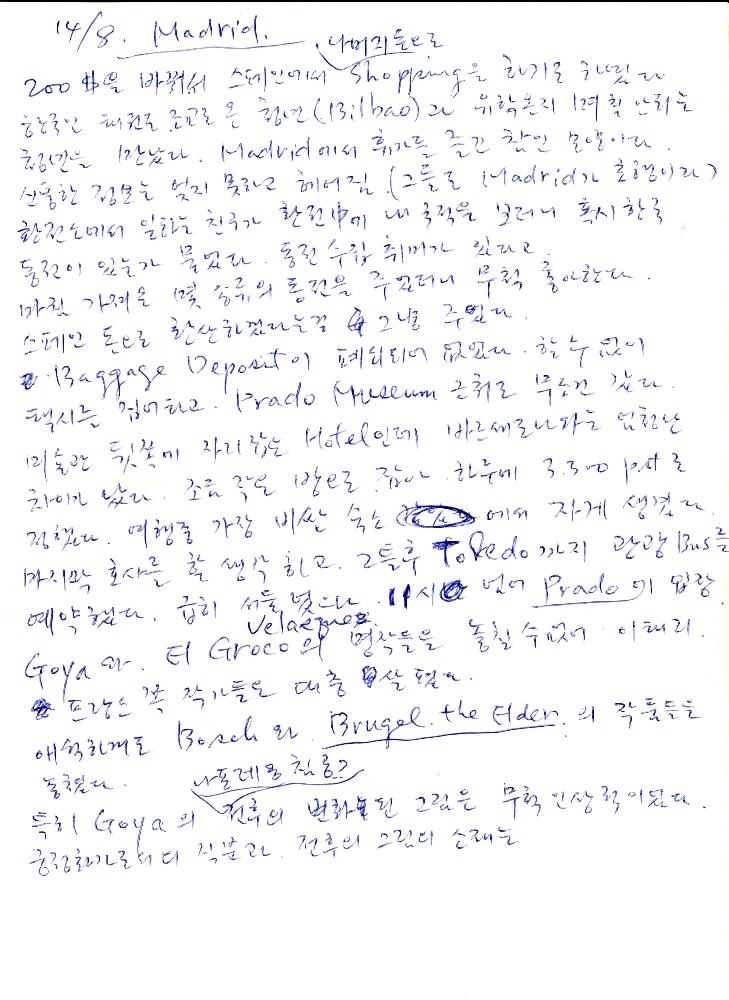 14/8. Madrid.
나머지 돈으로
200 $을 바꿔서 스페인에서 Shopping을 하기로 하였다
한국인 태권도 조교로 온 청년(Bilbao)과 유학온지 1년 안되는
청년을 만났다. Madrid에서 휴가를 즐긴 참인 모양이다.
신통한 정보는 얻지 못하고 헤어짐 (그들도 Madrid가 초행이라)
환전소에서 일하는 친구가 환전中에 내 국적을 보더니 혹시 한국
동전이 있는가 물었다. 동전 수집 취미가 있다고.
마침 가져온 몇 종류의 동전을 주었더니 무척 좋아한다.
스페인 돈으로 환산하겠다는걸 그냥 주었다.
Baggage Deposit이 폐쇄되어 없었다. 할 수 없이
택시를 집어타고. Prado Museum 근처로 무조건 갔다.
미술관 뒷쪽에 자리잡은 Hotel인데 바르세로나와는 엄청난
차이가 났다. 조금 작은 방으로 잡아 하루에 3.300 pst로
정했다. 여행중 가장 비싼 숙소에서 자게 생겼다.
마지막 호사를 할 생각 하고. 그틀후 Toledo까지 관광 Bus를
예약했다. 급히 서둘렀으나 11시 넘어 Prado에 입장
Velaezquez
Goya와. El Greco의 명작들을 놓칠 수 없어 이태리.
프랑스 쪽 작가들은 대충 살폈다.
애석하게도 Bosch와. Brugel. the Elder.의 작품들을
놓쳤다.
나폴레옹 침공?
특히 Goya의 전후의 변화된 그림은 무척 인상적이었다.
궁정화가로서의 직분과. 전후의 그림의 소재는